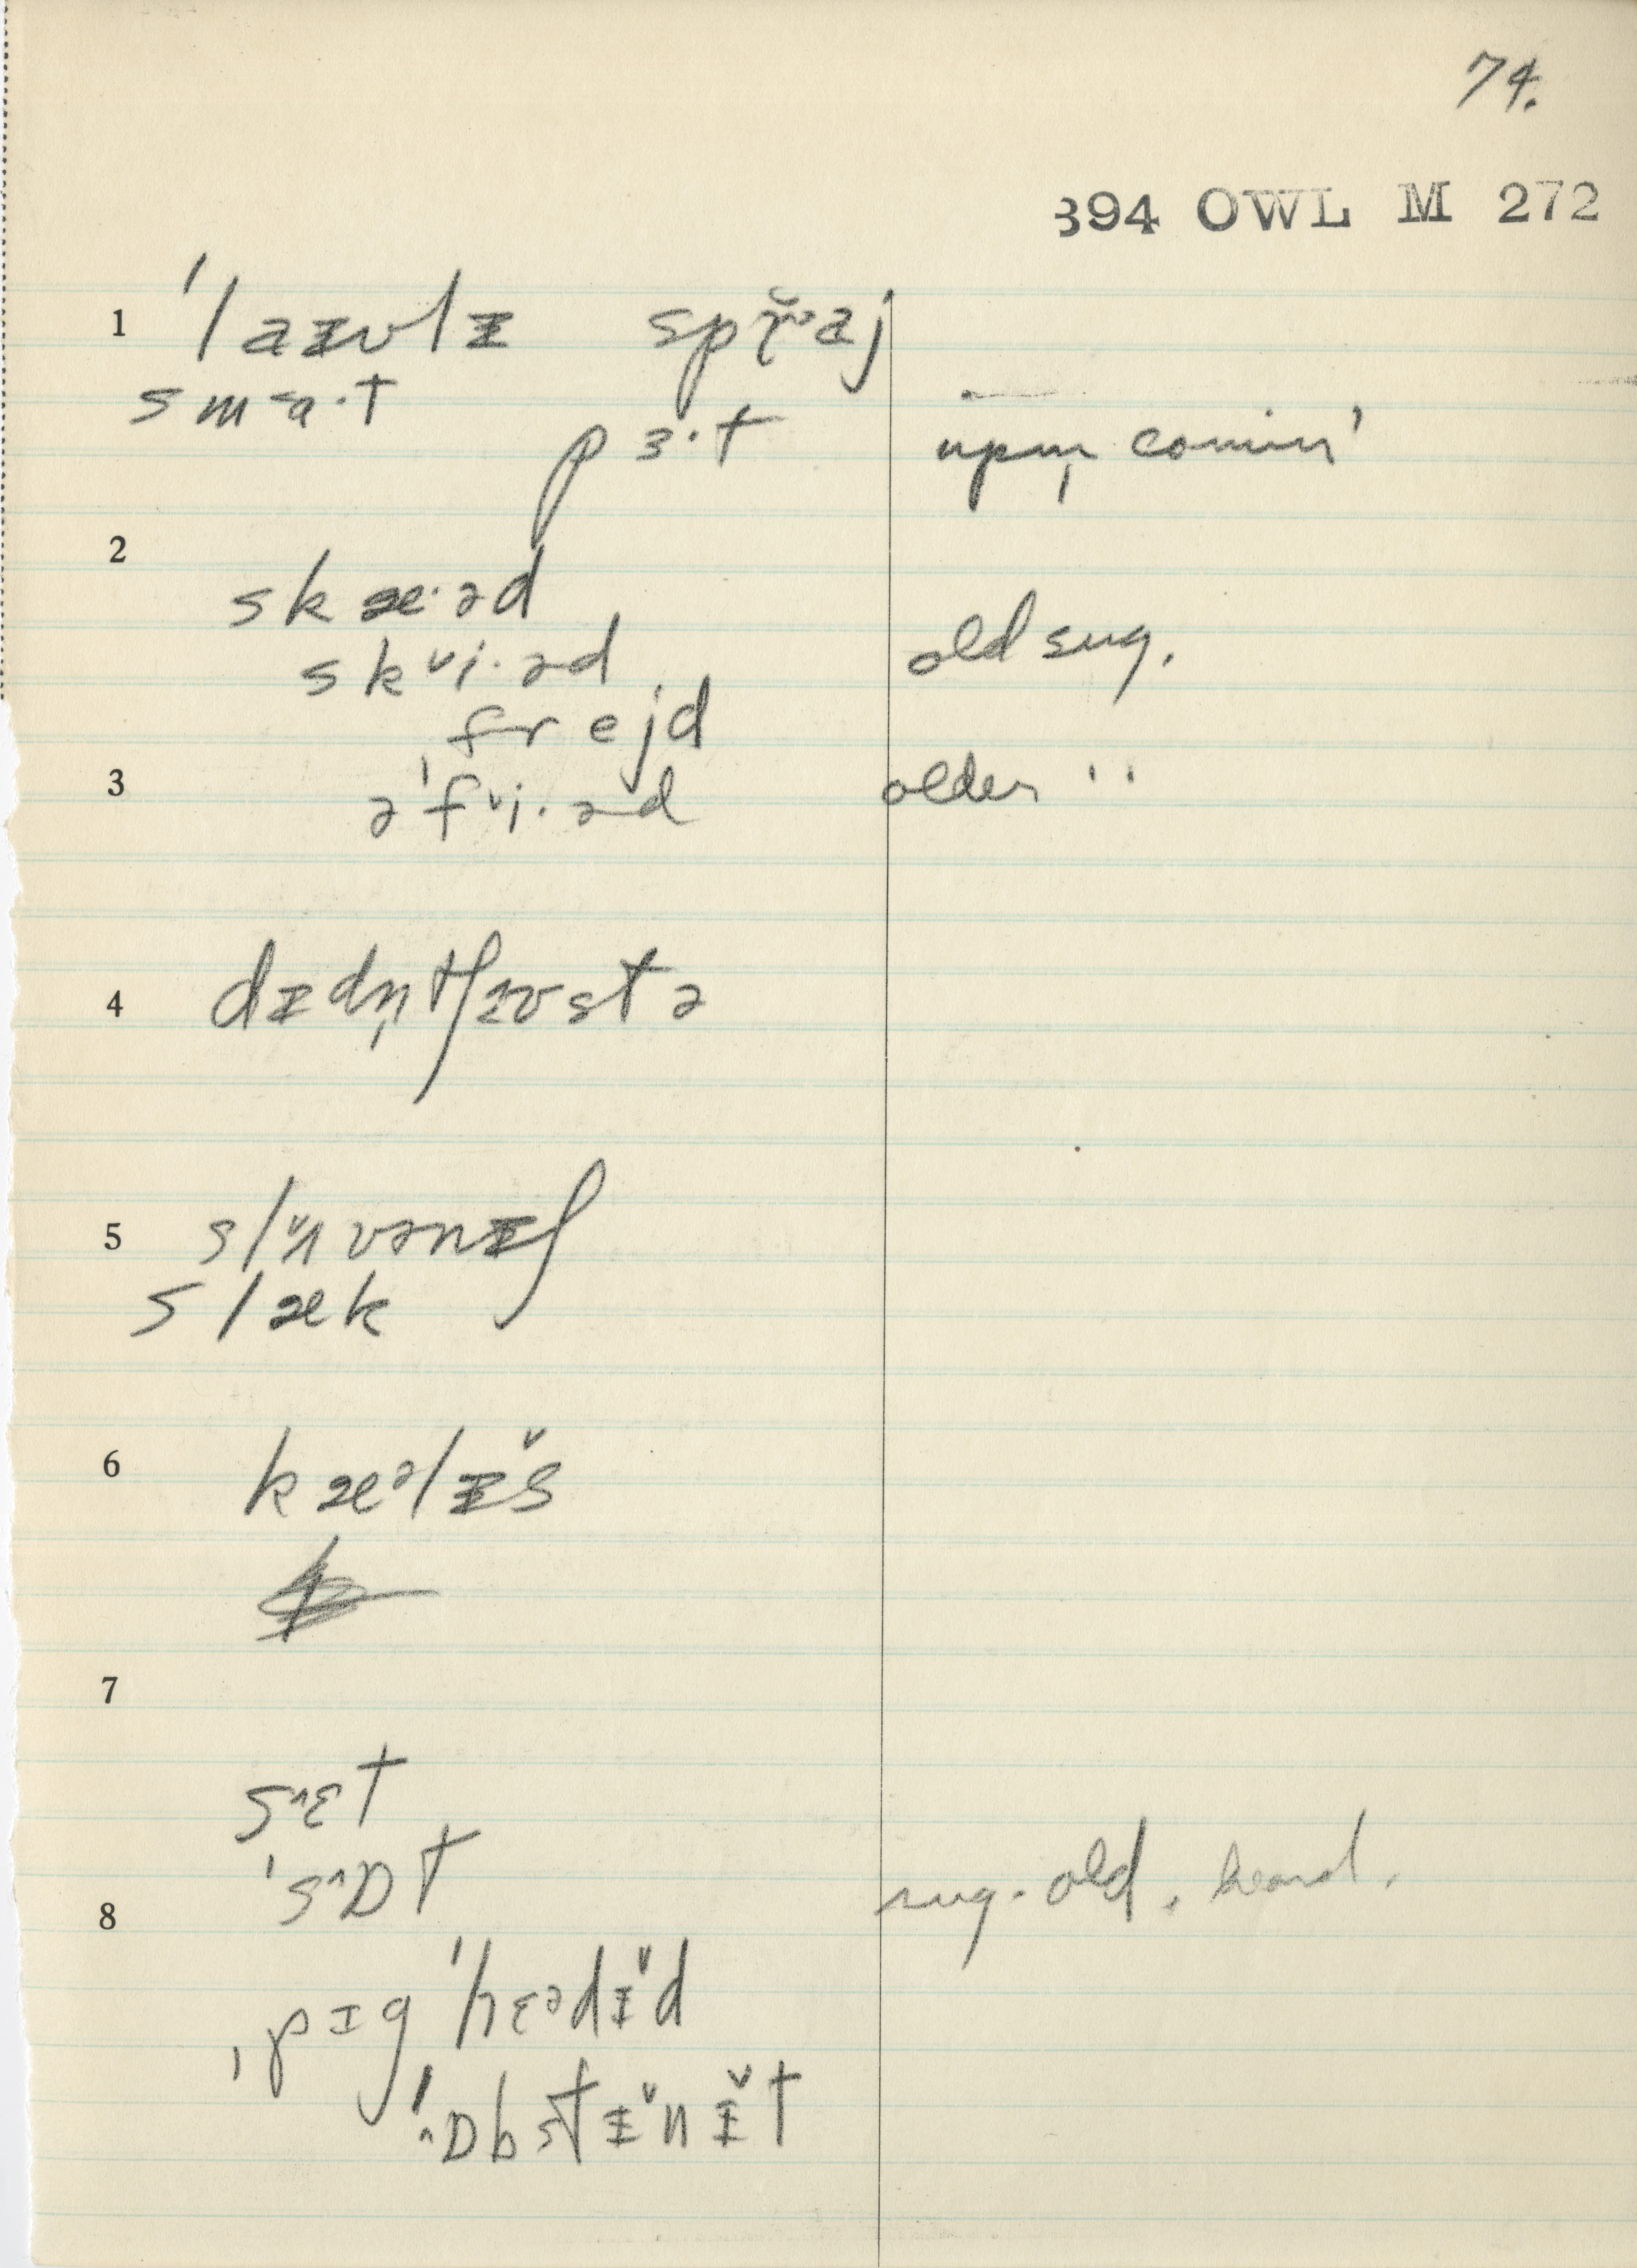 74.
394 OWL M 272
1 ˈlaᵻvlᵻ spř̬aj
smɑ·t
pɜ·t upm̩ comin'
2
skæ·əd
skᵛi·əd old sug.
ˌfrejd
3 əˈfᵛi·əd older ''
4 dᵻdn̩tʃɜʊstə
5 slʌ̌vənᵻʃ
slæk
6 kæᵊlᵻ̌s
7
s^ɛt
ˈs^ɒt sug. old. heard.
8
ˌpɪgˈhɛədᵻ̌d
ˈ^ɒbstᵻ̌nᵻ̌t